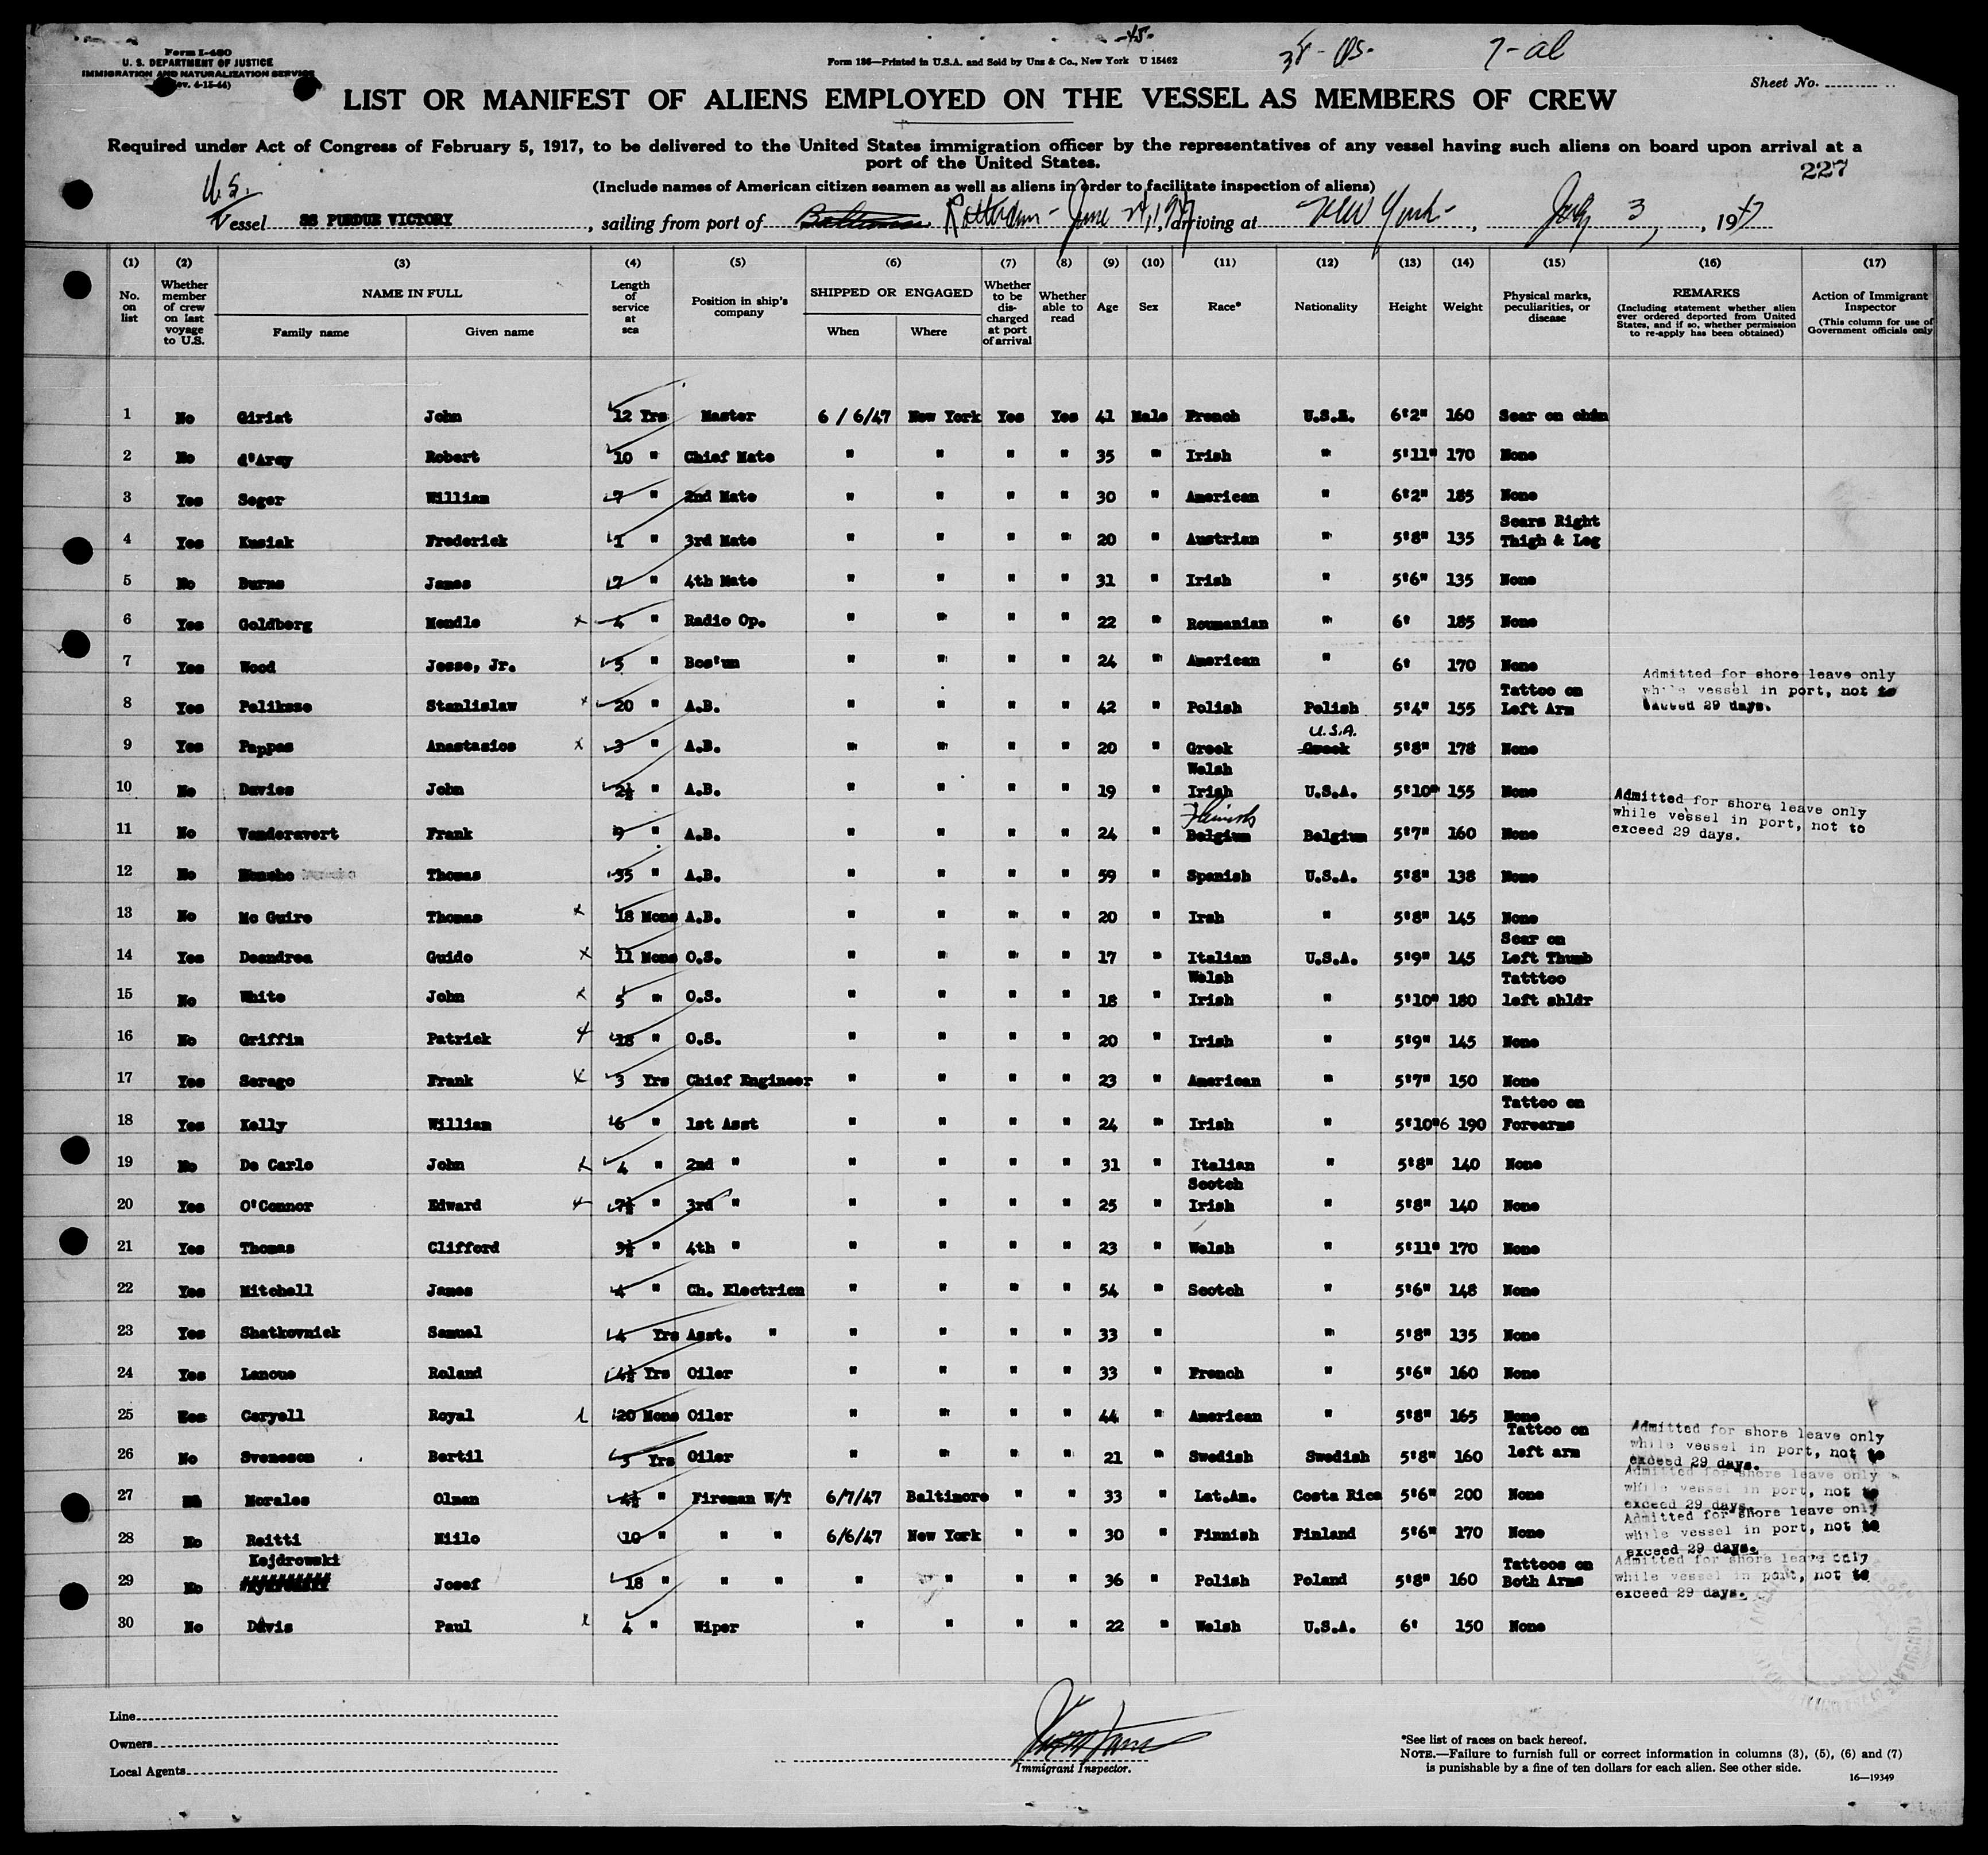 Form I-480
U. S. DEPARTMENT OF JUSTICE
IMMIGRATION AND NATURALIZATION SERVICE
(Rev. 4-15-44)
-45-
Form 186—Printed in U.S.A. and Sold by Unz & Co., New York U 15462
38-05-
7-al
Sheet No.
LIST OR MANIFEST OF ALIENS EMPLOYED ON THE VESSEL AS MEMBERS OF CREW
Required under Act of Congress of February 5, 1917, to be delivered to the United States immigration officer by the representatives of any vessel having such aliens on board upon arrival at a
port of the United States.
227
(Include names of American citizen seamen as well as aliens in order to facilitate inspection of aliens)
U.S.
Vessel SS PURDUE VICTORY, sailing from port of Baltimore Rotterdam - June 24, 1947, arriving at New York, July 3, 1947
(1) (2) (3) (4) (5) (6) (7) (8) (9) (10) (11) (12) (13) (14) (15) (16) (17)
No. on list
Whether member of crew on last voyage to U.S.
NAME IN FULL
Family name Given name
Length of service at sea
Position in ship's company
SHIPPED OR ENGAGED
When Where
Whether to be discharged at port of arrival
Whether able to read
Age Sex Race* Nationality Height Weight
Physical marks, peculiarities, or disease
REMARKS
(Including statement whether alien ever ordered deported from United States, and if so, whether permission to re-apply has been obtained)
Action of Immigrant Inspector
(This column for use of Government officials only)
1 No Giriat John 12 Yrs Master 6 / 6/47 New York Yes Yes 41 Male French U.S.A. 6'2" 160 Scar on chin
2 No d'Arcy Robert 10 " Chief Mate " " " " 35 " Irish " 5'11" 170 None
3 Yes Seger William 7 " 2nd Mate " " " " 30 " American " 6'2" 185 None
Scars Right
4 Yes Kusiak Frederick 1 " 3rd Mate " " " " 20 " Austrian " 5'8" 135 Thigh & Leg
5 No Burns James 7 " 4th Mate " " " " 31 " Irish " 5'6" 135 None
6 Yes Goldberg Mendle x 4 " Radio Op. " " " " 22 " Roumanian " 6' 185 None
7 Yes Wood Jesse, Jr. 5 " Bos'un " " " " 24 " American " 6' 170 None
Tattoo on Admitted for shore leave only
8 Yes Peliksze Stanlislaw x 20 " A.B. " " " " 42 " Polish Polish 5'4" 155 Left Arm while vessel in port, not to exceed 29 days.
U.S.A.
9 Yes Pappas Anastasios x 3 " A.B. " " " " 20 " Greek Greek 5'8" 178 None
Welsh
10 No Davies John 2½ " A.B. " " " " 19 " Irish U.S.A. 5'10" 155 None
Flemish Admitted for shore leave only
11 No Vanderavert Frank 9 " A.B. " " " " 24 " Belgium Belgium 5'7" 160 None while vessel in port, not to exceed 29 days.
12 No Thomas 35 " A.B. " " " " 59 " Spanish U.S.A. 5'8" 138 None
13 No Mc Guire Thomas x 18 Mons A.B. " " " " 20 " Irsh " 5'8" 145 None
Scar on
14 Yes Deandrea Guido x 11 Mons O.S. " " " " 17 " Italian U.S.A. 5'9" 145 Left Thumb
Welsh Tatttoo
15 No White John x 5 " O.S. " " " " 18 " Irish " 5'10" 180 left shldr
16 No Griffin Patrick x 18 " O.S. " " " " 20 " Irish " 5'9" 145 None
17 Yes Serago Frank x 3 Yrs Chief Engineer " " " " 23 " American " 5'7" 150 None
Tattoo on
18 Yes Kelly William 6 " 1st Asst " " " " 24 " Irish " 5'10"6 190 Forearms
19 No De Carlo John x 4 " 2nd " " " " " 31 " Italian " 5'8" 140 None
Scotch
20 Yes O'Connor Edward x 7½ " 3rd " " " " " 25 " Irish " 5'8" 140 None
21 Yes Thomas Clifford 3½ " 4th " " " " " 23 " Welsh " 5'11" 170 None
22 Yes Mitchell James 4 " Ch. Electricn " " " " 54 " Scotch " 5'6" 148 None
23 Yes Shatkovnick Samuel 4 Yrs Asst. " " " " " 33 " " 5'8" 135 None
24 Yes Lanoue Roland 4½ Yrs Oiler " " " " 33 " French " 5'6" 160 None
25 Yes Coryell Royal 20 Mons Oiler " " " " 44 " American " 5'8" 165 None
Tattoo on Admitted for shore leave only
26 No Sveneson Bertil 5 Yrs Oiler " " " " 21 " Swedish Swedish 5'8" 160 left arm while vessel in port, not to exceed 29 days.
Admitted for shore leave only
27 Morales Olman 4½ " Fireman W/T 6/7/47 Baltimore " " 33 " Lat.Am. Costa Rica 5'6" 200 None while vessel in port, not to exceed 29 days.
Admitted for shore leave only
28 No Reitti Niilo 10 " " " 6/6/47 New York " " 30 " Finnish Finland 5'6" 170 None while vessel in port, not to exceed 29 days.
Kejdrowski Tattoos on Admitted for shore leave only
29 No Josef 18 " " " " " " " 36 " Polish Poland 5'8" 160 Both Arms while vessel in port, not to exceed 29 days.
30 No Davis Paul 4 " Wiper " " " " 22 " Welsh U.S.A. 6' 150 None
Line
Owners
Local Agents
Immigrant Inspector.
*See list of races on back hereof.
NOTE.—Failure to furnish full or correct information in columns (3), (5), (6) and (7)
is punishable by a fine of ten dollars for each alien. See other side.
16—19349